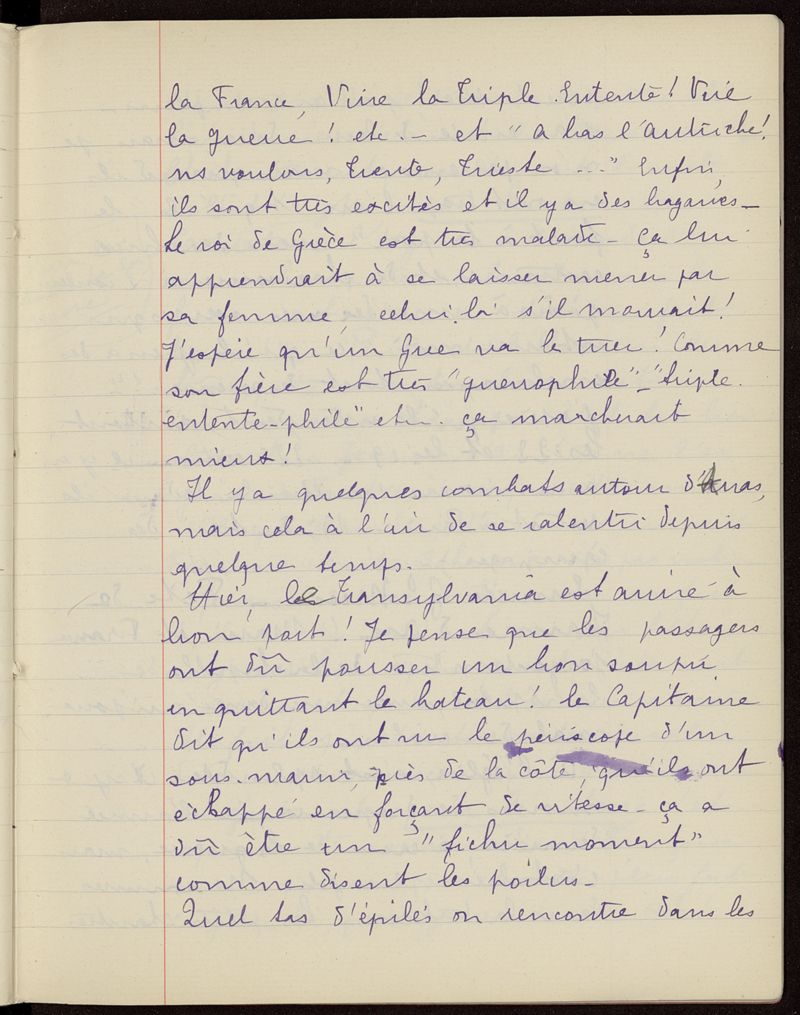 la France, Vive la Triple Entente! Vive
la guerre! etc. – et " a bas l'autriche!
ns voulons, Trente, Trieste ..." Enfin,
ils sont très excités et il y a des bagarres –
Le roi de Grèce est très malade – ça lui
apprendrait à se laisser mener par
sa femme, celui-là s'il mourait!
J'espère qu'un Grec va le tuer! Comme
son frère est très "guerrophile" – "triple-
entente-phile" etc. ça marcherait
mieux!
Il y a quelques combats autour d'Arras,
mais cela à l'air de se ralentir depuis
quelque temps.
Hier, le Transylvania est arrivé à
bon port! Je pense que les passagers
ont dû pousser un bon soupir
en quittant le bateau! le Capitaine
dit qu'ils ont vu le périscope d'un
sous-marin, près de la côte, qu'ils ont
échappé en forçant de vitesse – ça a
dû être un "fichu moment"
comme disent les poilus –
Quel tas d'épilés on rencontre dans les